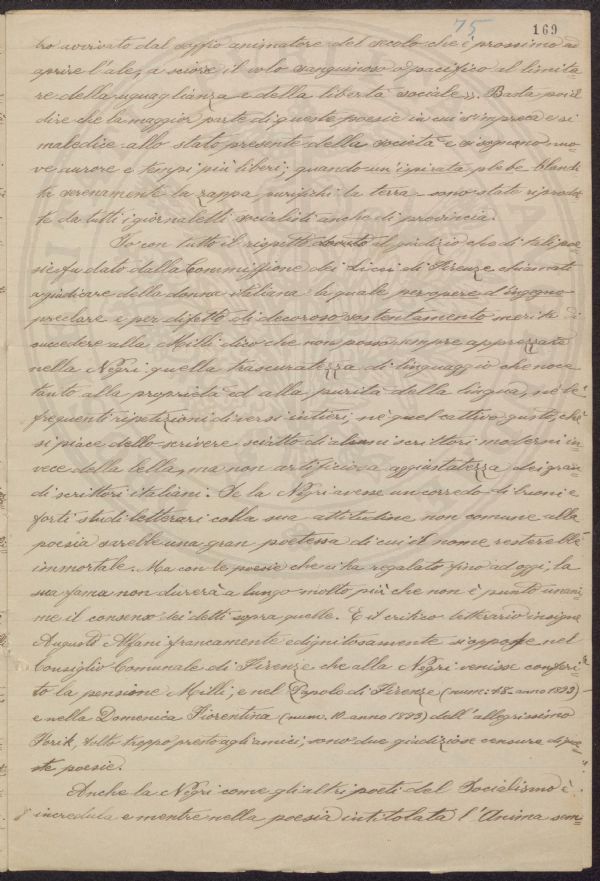 75 169
tro avvivato dal soffio animatore del secolo che è prossimo ad
aprire l'ale, a sciorre il volo sanguinoso o pacifico al limita
re della uguaglianza e della libertà sociale». Basta poi il
dire che la maggior parte di queste poesie in cui s'impreca e si
maledice allo stato presente della società e si sognano nuo
ve aurore e tempi più liberi; quando un'ispirata plebe blandi
ta serenamente la zappa purifichi la terra sono state riprodot
te da tutti i giornaletti socialisti anche di provincia.
Io con tutto il rispetto dovuto il giudizio che di tali poe=
sie fu dato dalla Commissione dei Licei di Firenze chiamata
a giudicare della donna italiana la quale per opere d'ingegno
preclare e per difetto di decoroso sostentamento merita di
succedere alla Milli dico che non posso sempre apprezzare
nella Negri quella trascuratezza di linguaggio che noce
tanto alla proprietà ed alla purità della lingua, nè le
frequenti ripetizioni di versi intieri, nè quel cattivo gusto, chè
si piace dello scrivere sciatto di alcuni scrittori moderni in=
vece della bella, ma non artificiosa aggiustatezza dei gran
di scrittori italiani. Se la Negri avesse un corredo di buoni e
forti studi letterari colla sua attitudine non comune alla
poesia sarebbe una gran poetessa di cui il nome resterebbe
immortale. Ma con le poesie che ci ha regalato fino ad oggi, la
sua fama non durerà a lungo molto più che non è punto unani
me il consenso dei detti sopra quelle. E il critico letterario insigne
Augusto Alfani francamente e dignitosamente si oppose nel
Consiglio Comunale di Firenze che alla Negri venisse conferi=
to la pensione Milli; e nel Popolo di Firenze (num: 48. anno 1893)
e nella Domenica Fiorentina (num. 10. anno 1893) dell'allegrissimo
Yorik, tolto troppo presto agli amici, sono due giudiziose censure di que=
ste poesie.
Anche la Negri come gli altri poeti del Socialismo è
incredula e mentre nella poesia intitolata l'Anima sem=